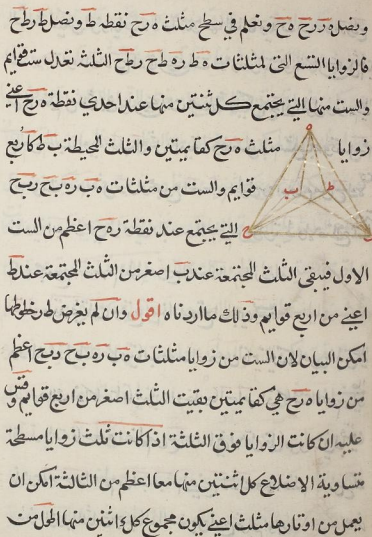 ونصل ه ز ز ح ه ح ونعلم في سطح مثلث ه ز ح نقطة ط ونصل ط ز ط ح
فالزوايا التسع التي لمثلثات ه ط ز ه ط ح ز ط ح الثلثة تعدل ست قوايم
والست منها التي يجتمع كل ثنتين منها عند احدي نقطة ه ز ح اعني
زوايا مثلث ه ز ح كقايمتين والثلث المحيطة ب ط كاربع
قوايم والست من مثلثات ه ب ز ه ب ح ز ب ح
التي يجتمع عند نقطة ز ه ح اعظم من الست
الاول فيبقى الثلث المجتمعة عند ب اصغر من الثلث المجتمعة عند ط
اعني من اربع قوايم وذلك ما اردناه اقول وان لم يفرض ط وخطوطها
امكن البيان لان الست من زوايا مثلثات ه ب ز ه ب ح ز ب ح اعظم
من زوايا ه ز ح هي كقايمتين بقيت الثلث اصغر من اربع قوايم وقس
عليه ان كانت الزوايا فوق الثلثة اذا كانت ثلث زوايا مسطحة
متساوية الاضلاع كل اثنتين منها معا اعظم من الثالثة امكن ان
يعمل من اوتارها مثلث اعني يكون مجموع كل اثنين منها اطول من